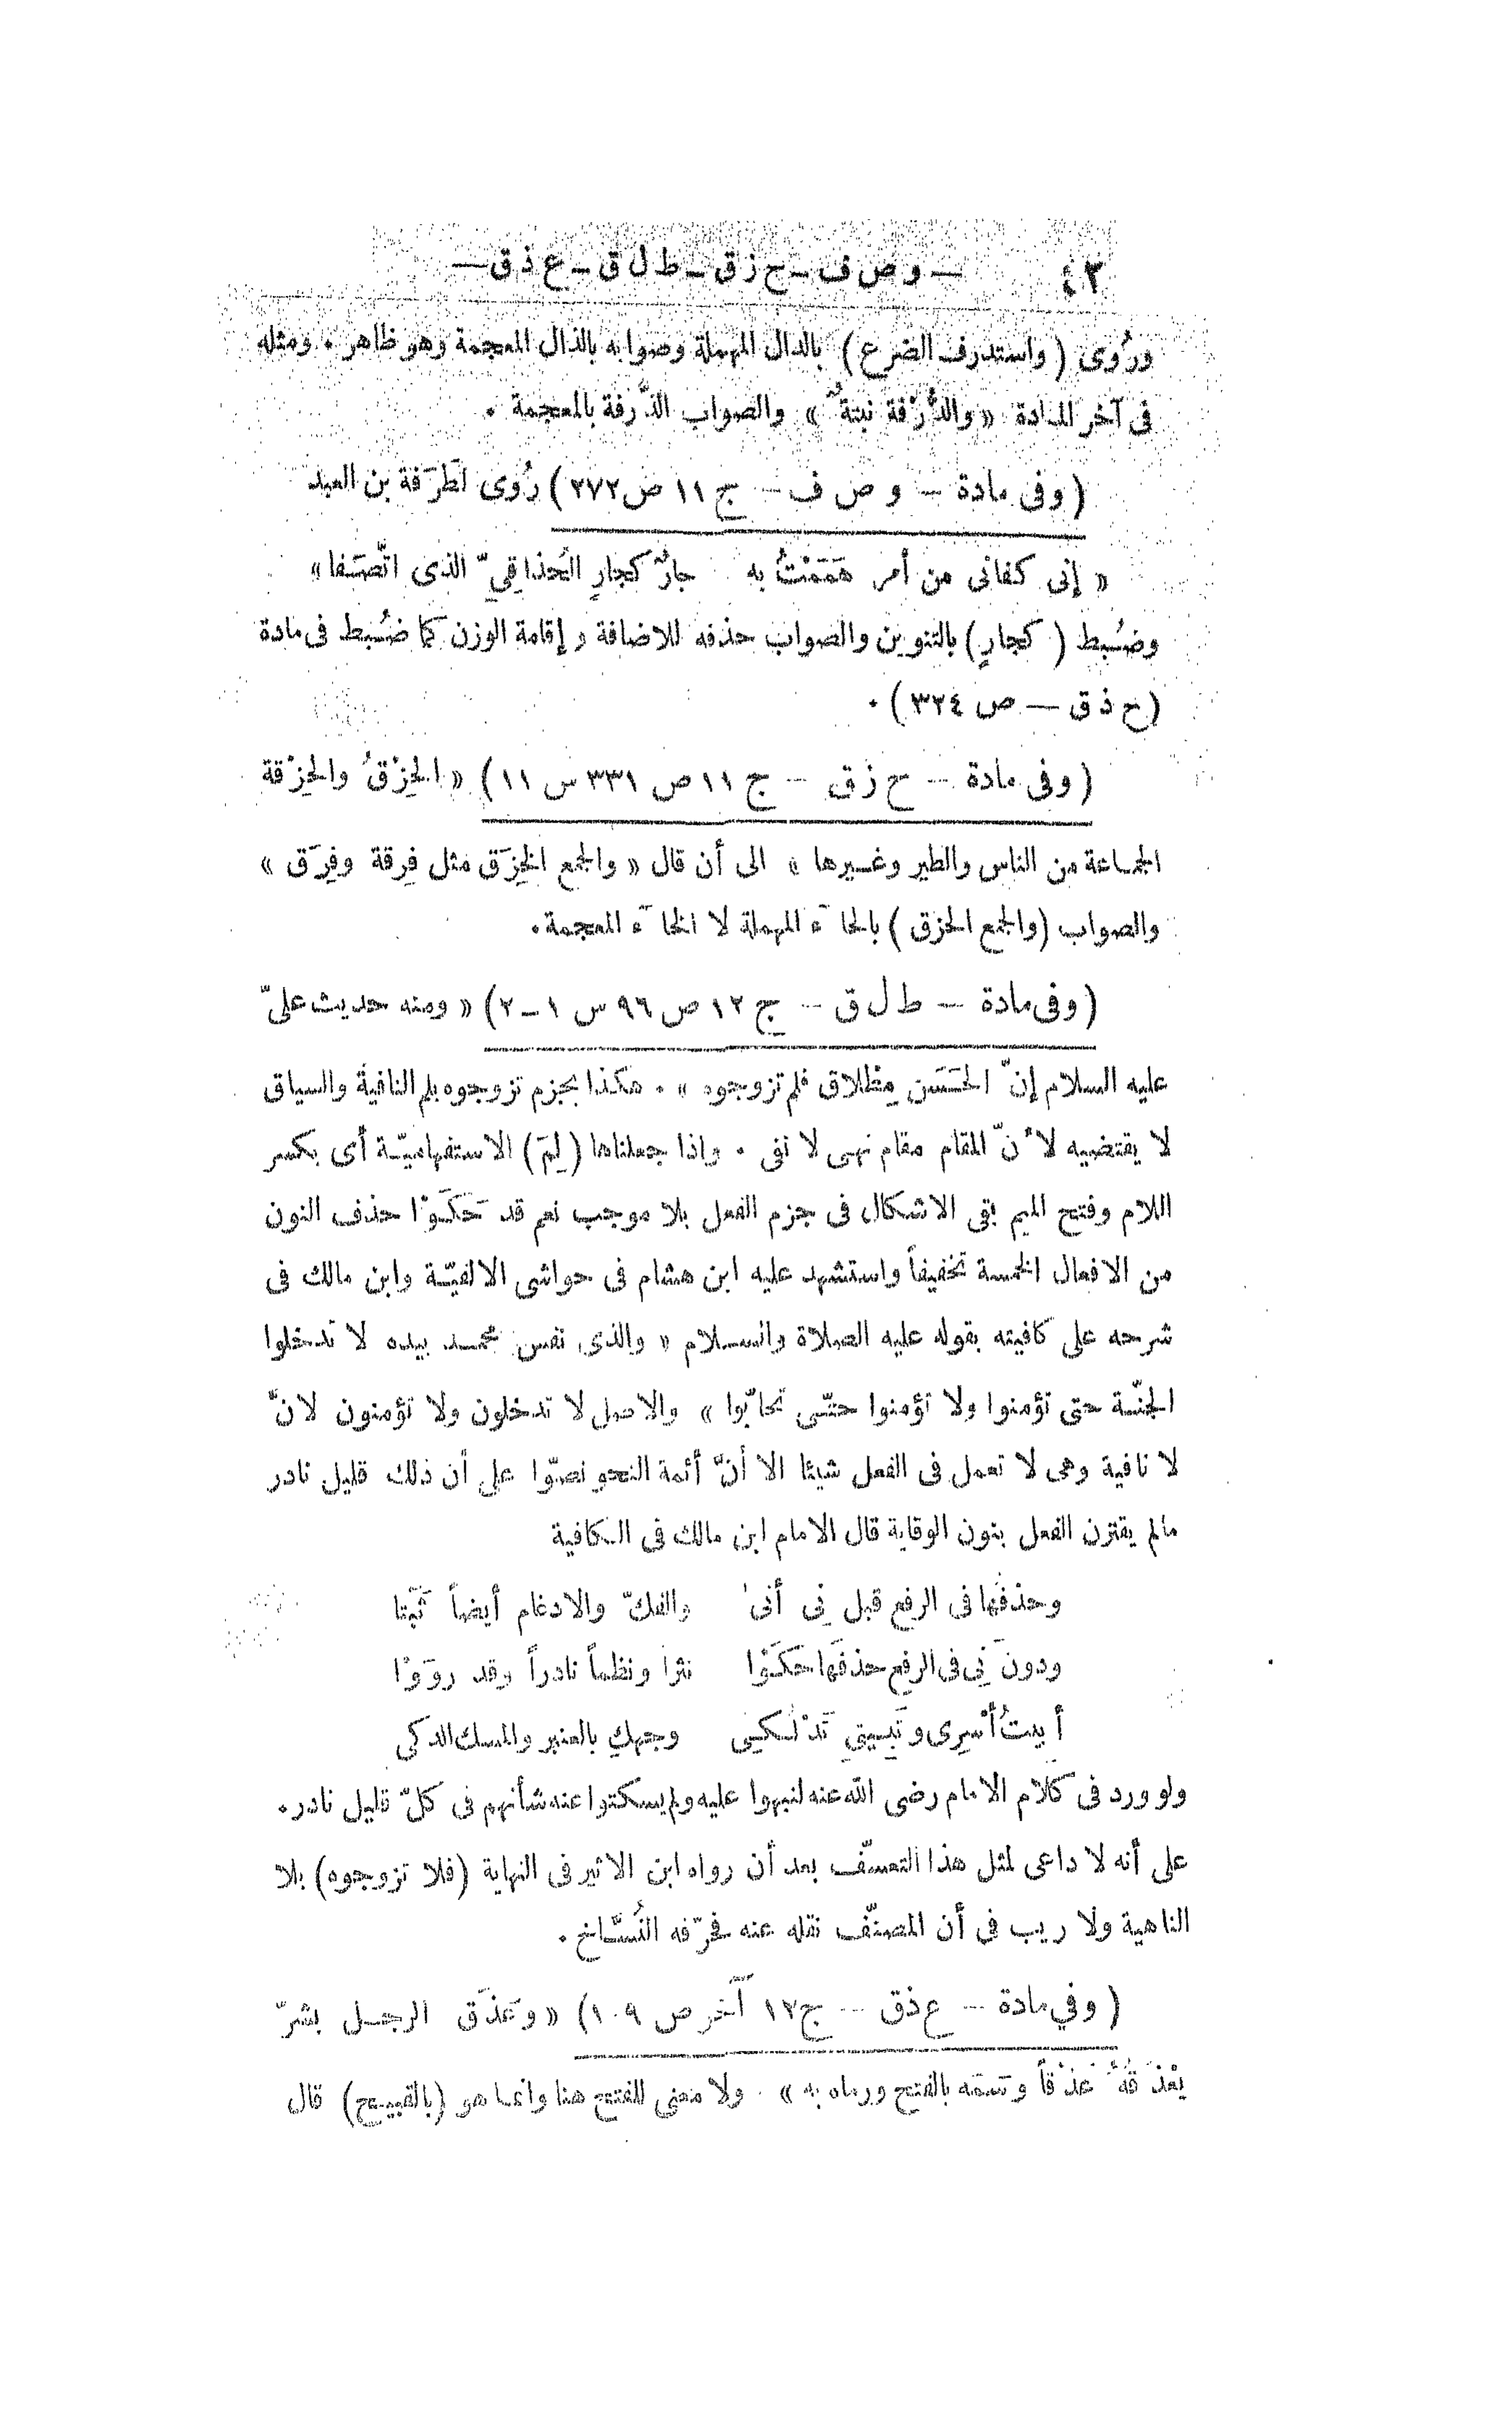 ٤٢ — و ص ف – ح ز ق – ط ل ق – ع ذ ق —
ورُوى (واستدرف الضرع) بالدال المهملة وصوابه بالذال المعجمة وهو ظاهر . ومثله
فى آخر المادة « والدُّرْفة نبتةٌ » والصواب الذُّرفة بالمعجمة .
(وفى مادة – و ص ف – ج ١١ ص ٢٧٢) رُوى لطَرَفة بن العبد
« إنى كفانى من أمر هَمَمْتُ به جارٌ كجارٍ الحُذاقِيِّ الذى اتَّصَفا »
وضُبط (كجارٍ) بالتنوين والصواب حذفه للاضافة وإقامة الوزن كما ضُبط فى مادة
(ح ذ ق — ص ٣٢٤) .
(وفى مادة – ح ز ق – ج ١١ ص ٣٣١ س ١١) « الحِزْقُ والحِزْقة
الجماعة من الناس والطير وغيرها » الى أن قال « والجمع الخِزَق مثل فِرقة وفِرَق »
والصواب (والجمع الحزق) بالحآء المهملة لا الخآء المعجمة .
(وفى مادة – ط ل ق – ج ١٢ ص ٩٦ س ١–٢) « ومنه حديث علىّ
عليه السلام إنّ الحَسَن مِطلاق فلم تزوجوه » . هكذا بجزم تزوجوه بلم النافية والسياق
لا يقتضيه لأنّ المقام مقام نهى لا نفى . واذا جعلناها (لِمَ) الاستفهاميّة أى بكسر
اللام وفتح الميم بقى الاشكال فى جزم الفعل بلا موجب نعم قد حَكَوْا حذف النون
من الافعال الخمسة تخفيفاً واستشهد عليه ابن هشام فى حواشى الالفيّة وابن مالك فى
شرحه على كافيته بقوله عليه الصلاة والسلام « والذى نفس محمد بيده لا تدخلوا
الجنّة حتى تؤمنوا ولا تؤمنوا حتّى تحابّوا » والاصل لا تدخلون ولا تؤمنون لانّ
لا نافية وهى لا تعمل فى الفعل شيئا الا أنّ أئمة النحو نصّوا على أن ذلك قليل نادر
مالم يقترن الفعل بنون الوقاية قال الامام ابن مالك فى الكافية
وحذفُها فى الرفع قبل نِى أتى والفكّ والادغام أيضاً ثَبَتا
ودونَ نِى فى الرفع حذفَها حَكَوْا نثرا ونظماً نادراً وقد روَوْا
أبيتُ أَسْرِى وتَبِيتِى تَدْلُكِى وجهكِ بالعنبر والمسك الذكى
ولو ورد فى كلام الامام رضى الله عنه لنبهوا عليه ولم يسكتوا عنه شأنهم فى كلّ قليل نادر .
على أنه لا داعى لمثل هذا التعسّف بعد أن رواه ابن الاثير فى النهاية (فلا تزوجوه) بلا
الناهية ولا ريب فى أن المصنّف نقله عنه فحرّفه النُسّاخ .
(وفي مادة – ع ذ ق – ج ١٢ آخر ص ١٠٩) « وعَذَق الرجل بشرّ
يعْذقُهُ عَذْقاً وسَمَه بالفتح ورماه به » . ولا معنى للفتح هنا وانما هو (بالقبيح) قال